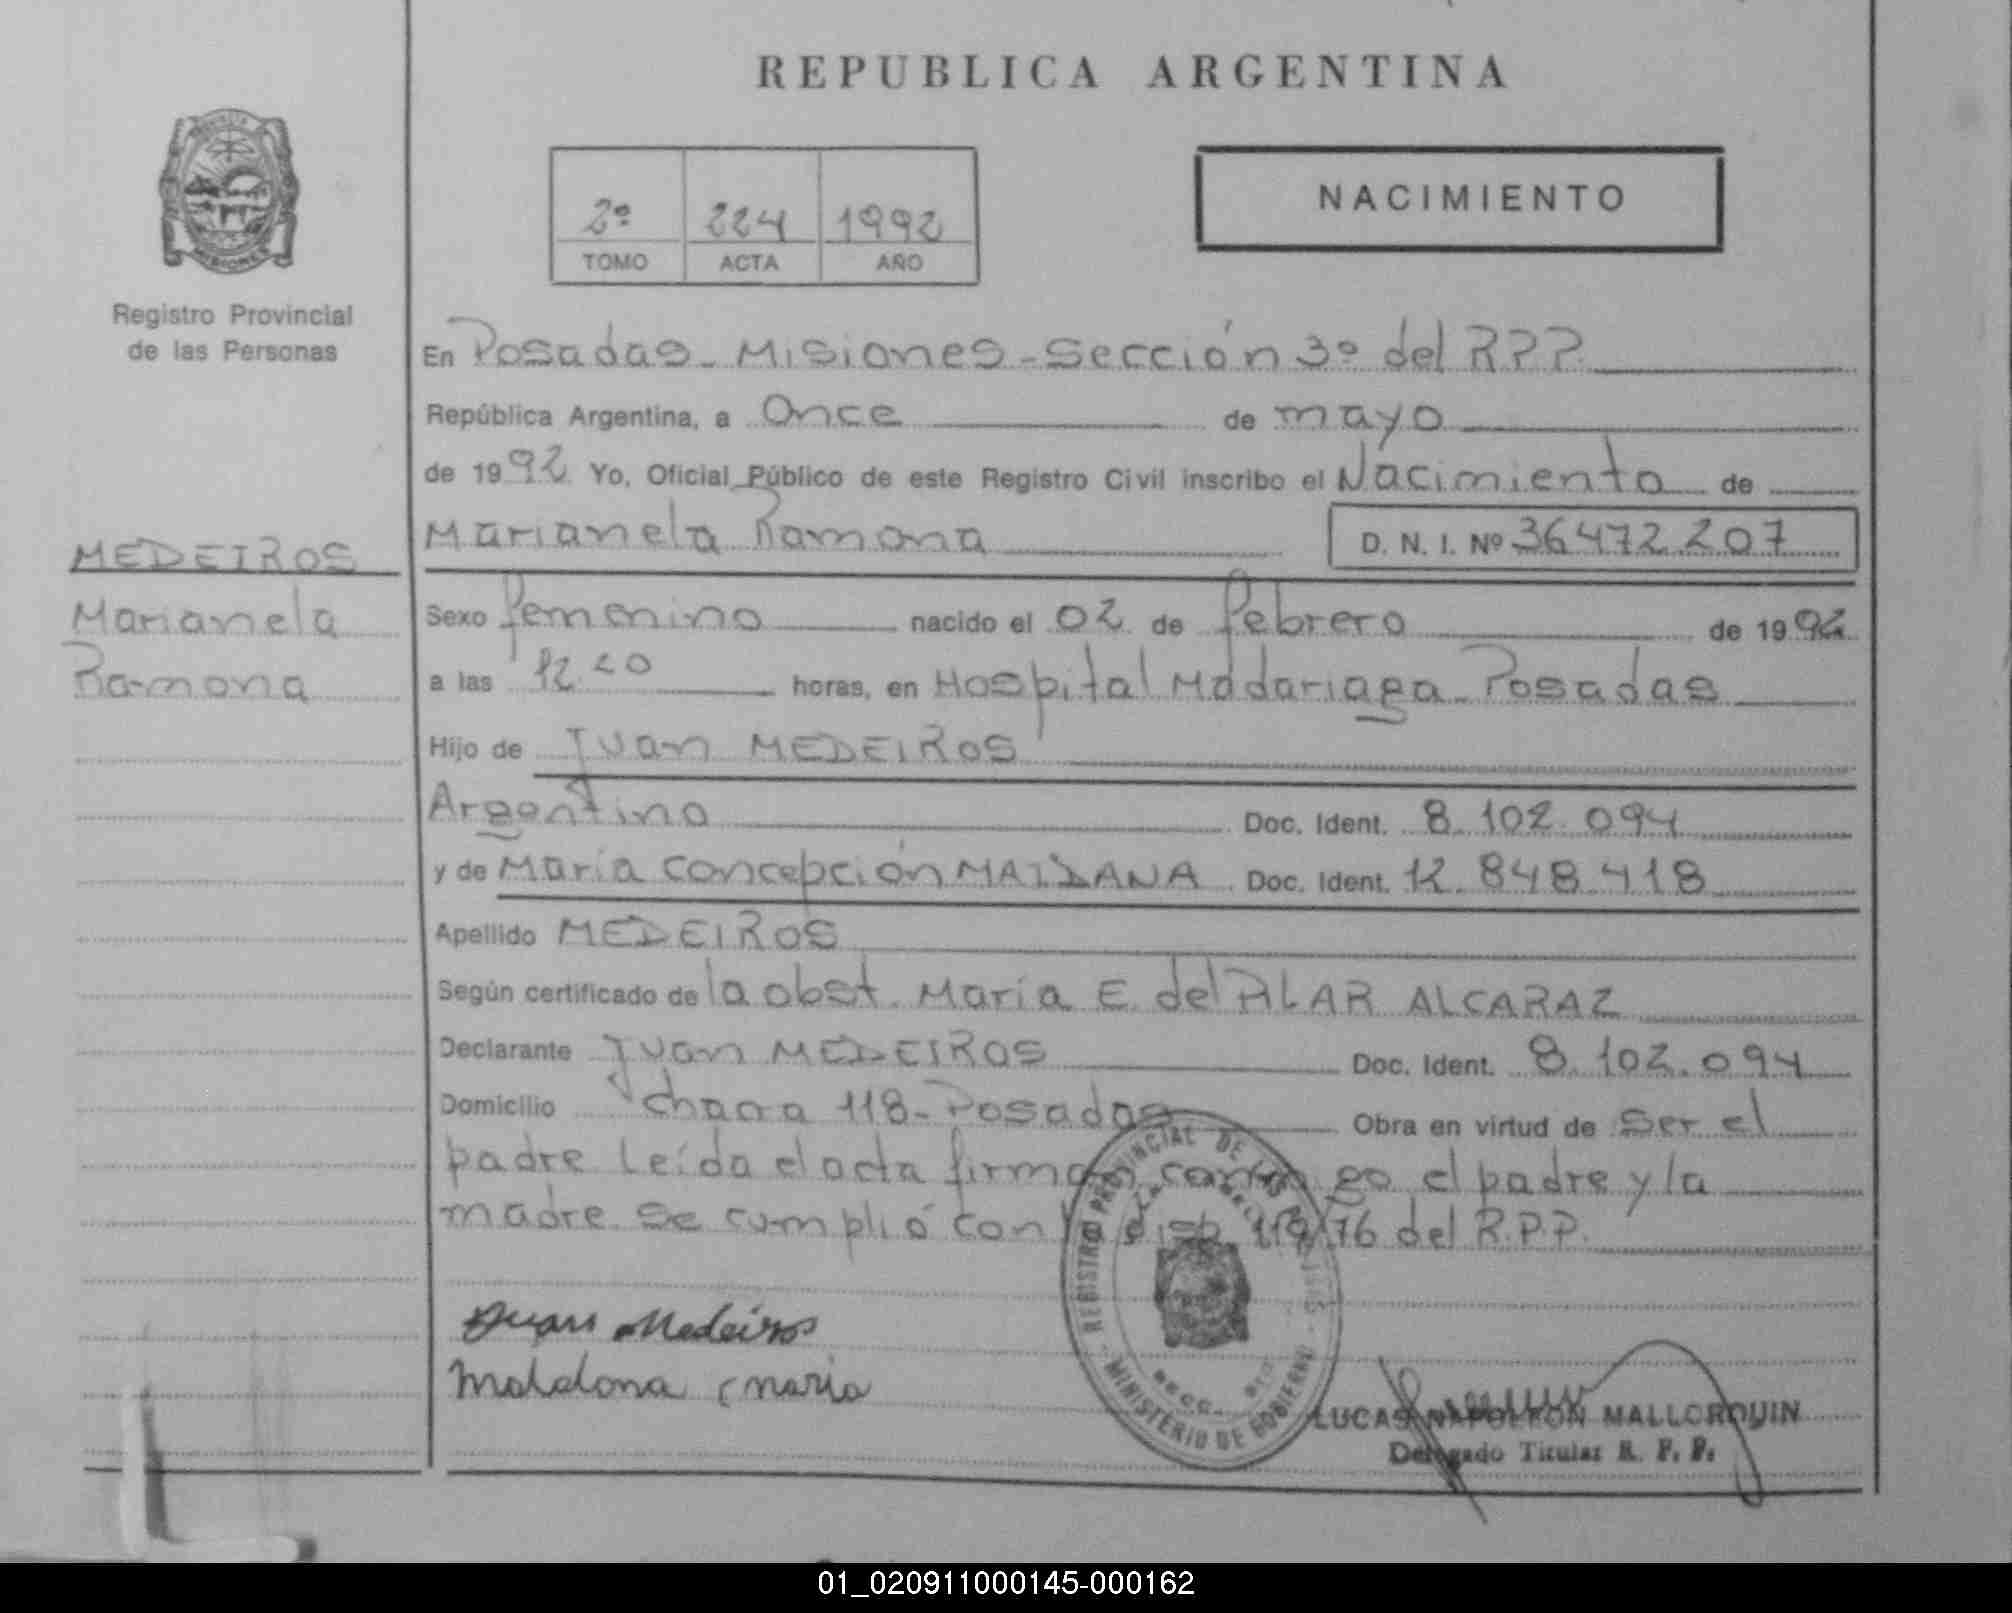 REPUBLICA ARGENTINA
PROVINCIA
MISIONES
Registro Provincial
de las Personas
2º 224 1992
TOMO ACTA AÑO
NACIMIENTO
En Posadas - Misiones - Sección 3º del R.P.P.
República Argentina, a Once de mayo
de 1992 Yo, Oficial Público de este Registro Civil inscribo el Nacimiento de
Marianela Ramona D. N. I. Nº 36472.207
MEDEIROS
Marianela
Ramona
Sexo femenino nacido el 02 de febrero de 1992
a las 12.20 horas, en Hospital Madariaga Posadas
Hijo de Juan MEDEIROS
Argentino Doc. Ident. 8.102.094
y de María Concepción MAIDANA Doc. Ident. 12.848.418
Apellido MEDEIROS
Según certificado de la obst. María E. del PILAR ALCARAZ
Declarante Juan MEDEIROS Doc. Ident. 8.102.094
Domicilio Chacra 118 - Posadas Obra en virtud de ser el
padre Leída el acta firman conmigo el padre y la
madre. Se cumplió con la disp. 119/76 del R.P.P.
REGISTRO PROVINCIAL DE LAS
MINISTERIO DE GOBIERNO
Juan Medeiros
Maidana Maria
LUCAS NAPOLEON MALLORQUIN
Delegado Titular R. P. P.
01_020911000145-000162